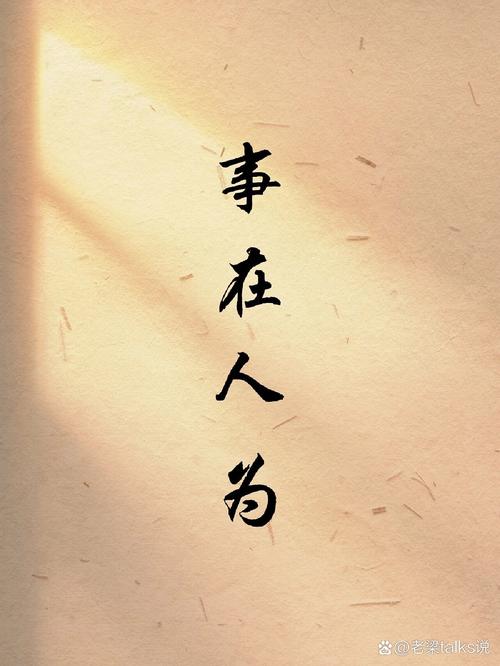 事在人为
@老梁talks说